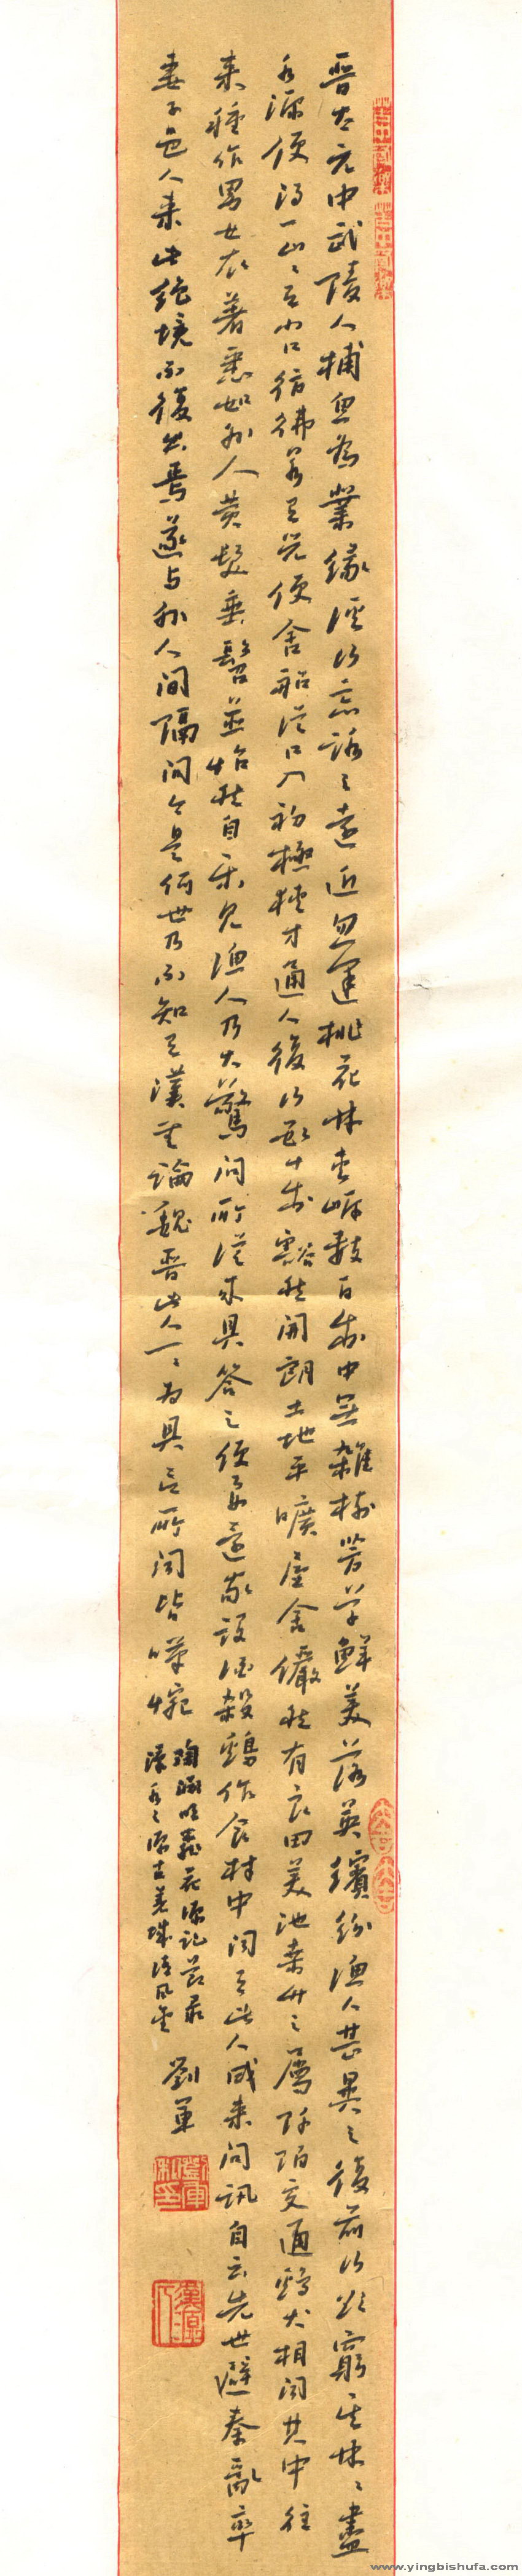 晋太元中武陵人捕鱼为業缘溪行忘路之远近忽逢桃花林夹岸数百步中無雜树芳草鲜美落英缤纷渔人甚異之復前行欲窮其林林盡
水源便得一山山有小口彷彿若有光便舍船從口入初極狭才通人復行數十步豁然開朗土地平曠屋舍儼然有良田美池桑竹之屬阡陌交通鷄犬相闻其中往
来種作男女衣著悉如外人黄髮垂髫並怡然自乐見渔人乃大驚问所從来具答之便要還家設酒殺鷄作食村中闻有此人咸来问訊自云先世避秦亂率
妻子邑人来此绝境不復出焉遂与外人间隔问今是何世乃不知有漢无論魏晋此人一一为具言所闻皆嘆惋
陶淵明桃花源记節录
漾水之源古羌城清风堂
劉軍
www.yingbishufa.com